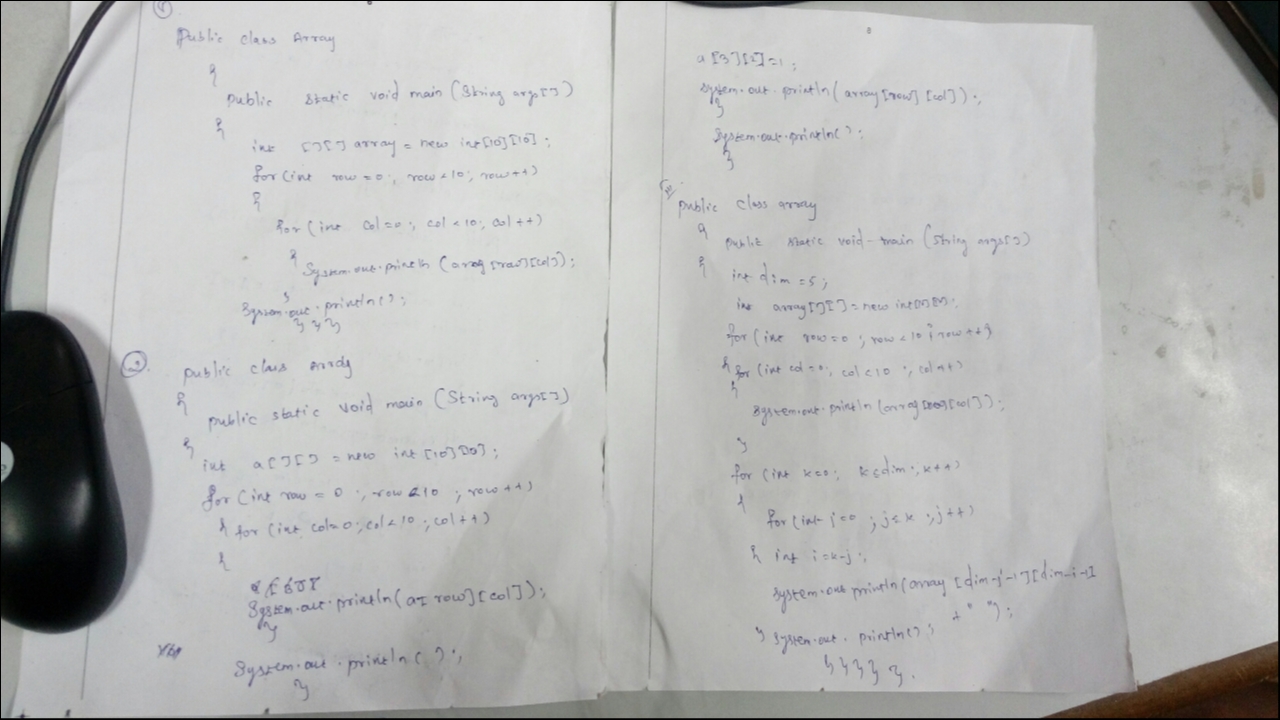 public class Array
{
public static void main (String args[])
{
int [][] array = new int[10][10];
for (int row = 0; row < 10; row++)
{
for (int col=0; col < 10; col++)
{
System.out.println (array [row][col]);
}
System.out.println();
}}}
public class Array
{
public static void main (String args[])
{
int a[][] = new int [10][10];
for (int row = 0; row < 10; row++)
{ for (int col=0; col < 10; col++)
{
System.out.println(a[row][col]);
}
System.out.println();
}
a[3][2]=1;
System.out.println(array[row][col]);
}
System.out.println();
}
public class array
{
public static void main (String args[])
{
int dim =5;
int array[][] = new int[][];
for (int row=0; row < 10; row++)
{ for (int col=0; col<10; col++)
{
System.out.println (array[row][col]);
}
for (int k=0; k≤dim; k++)
{
for (int j=0; j≤k; j++)
{ int i=k-j;
System.out.println(array [dim-j-1][dim-i-1]
+ " ");
} System.out.println();
}}}}}.